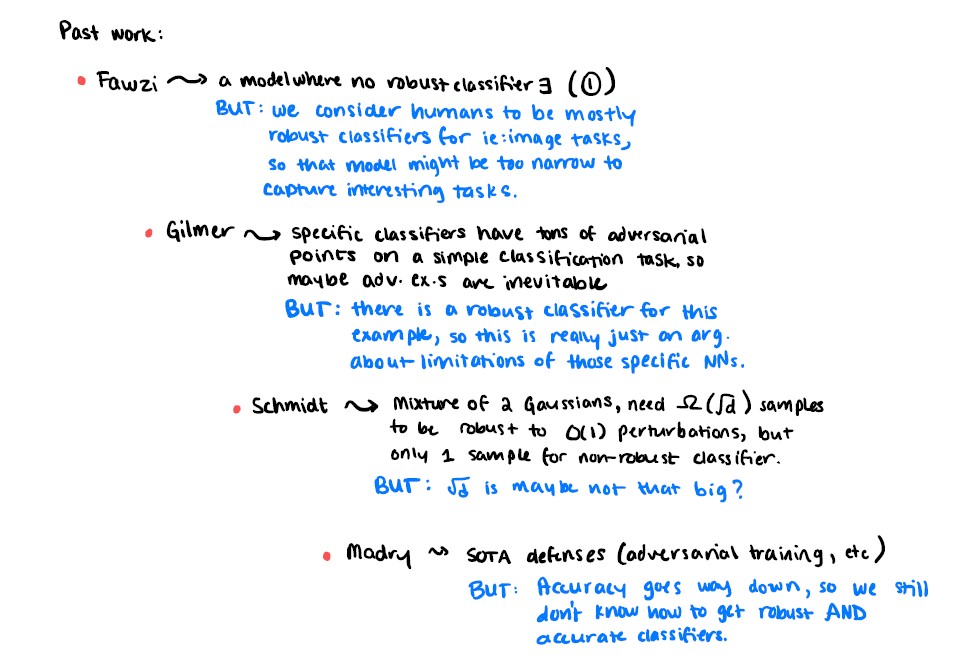 Past work:
• Fawzi ⟿ a model where no robust classifier ∃ (①)
BUT: we consider humans to be mostly
robust classifiers for ie: image tasks,
so that model might be too narrow to
capture interesting tasks.
• Gilmer ⟿ specific classifiers have tons of adversarial
points on a simple classification task, so
maybe adv. ex.s are inevitable
BUT: there is a robust classifier for this
example, so this is really just an arg.
about limitations of those specific NNs.
• Schmidt ⟿ Mixture of 2 Gaussians, need Ω(√d) samples
to be robust to O(1) perturbations, but
only 1 sample for non-robust classifier.
BUT: √d is maybe not that big?
• Madry ⟿ SOTA defenses (adversarial training, etc)
BUT: Accuracy goes way down, so we still
don't know how to get robust AND
accurate classifiers.